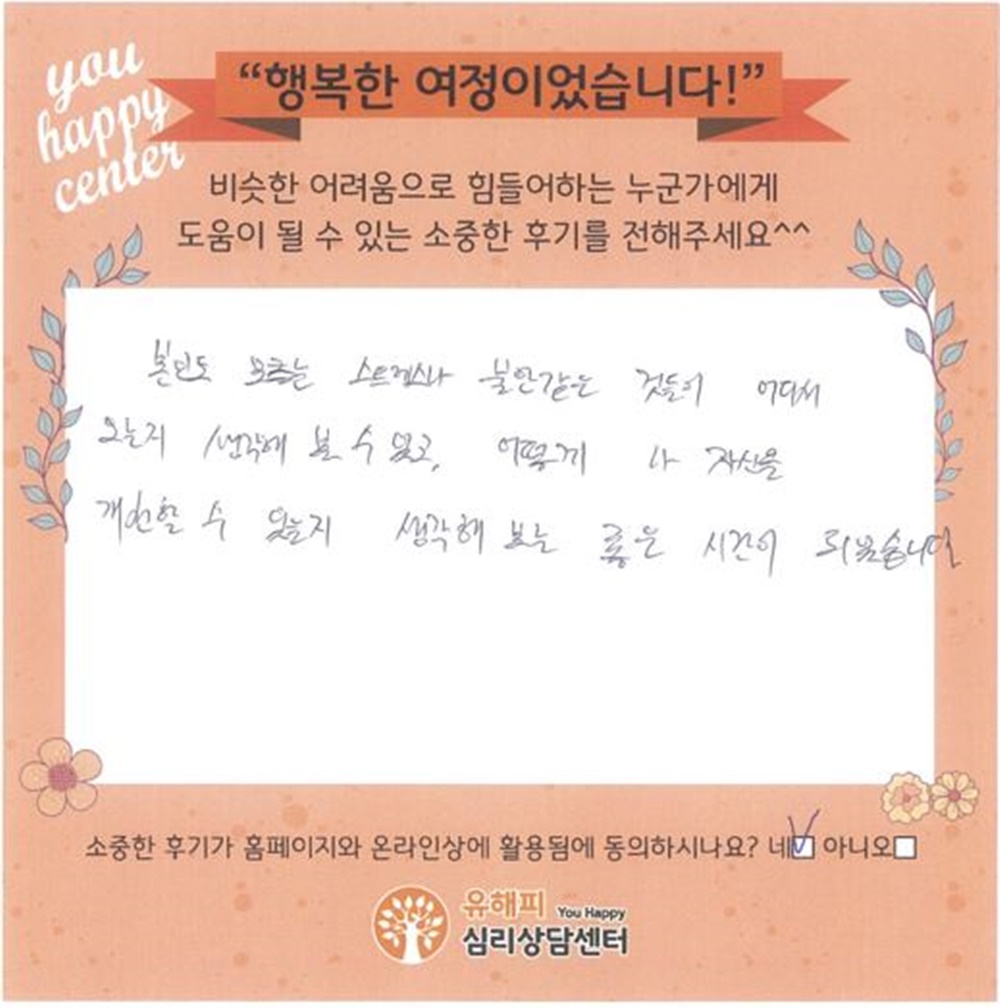 you
happy
center
“행복한 여정이었습니다!”
비슷한 어려움으로 힘들어하는 누군가에게
도움이 될 수 있는 소중한 후기를 전해주세요^^
본인도 모르는 스트레스나 불안같은 것들이 어디서
오는지 생각해 볼 수 있고, 어떻게 나 자신을
개선할 수 있는지 생각해 보는 좋은 시간이 되었습니다
소중한 후기가 홈페이지와 온라인상에 활용됨에 동의하시나요? 네 아니오
유해피 You Happy
심리상담센터